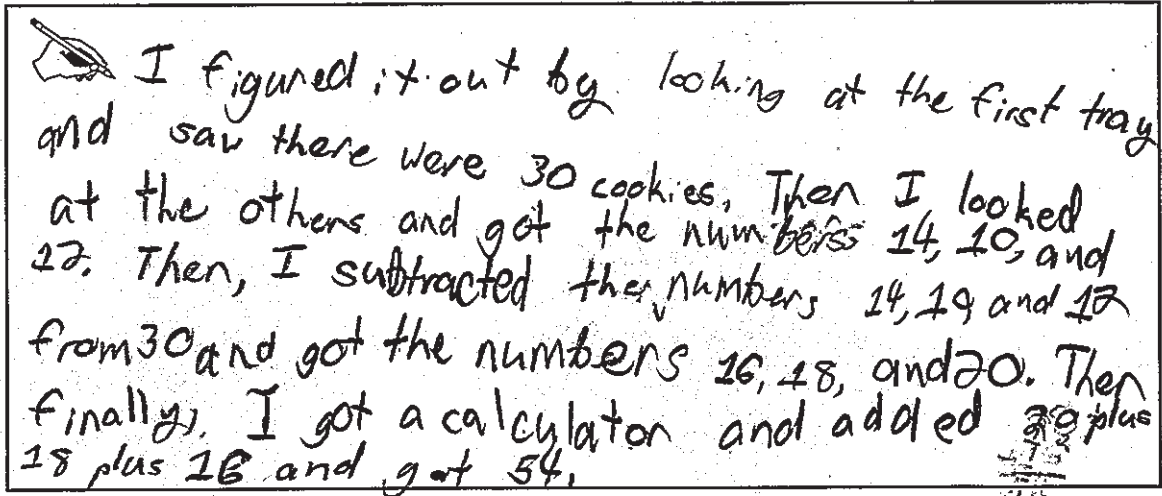 I figured it out by looking at the first tray
and saw there were 30 cookies, Then I looked
at the others and got the numbers 14, 10, and
12. Then, I subtracted the numbers 14, 10 and 12
from 30 and got the numbers 16, 18, and 20. Then
finally, I got a calculator and added 20 plus
18 plus 16 and got 54.